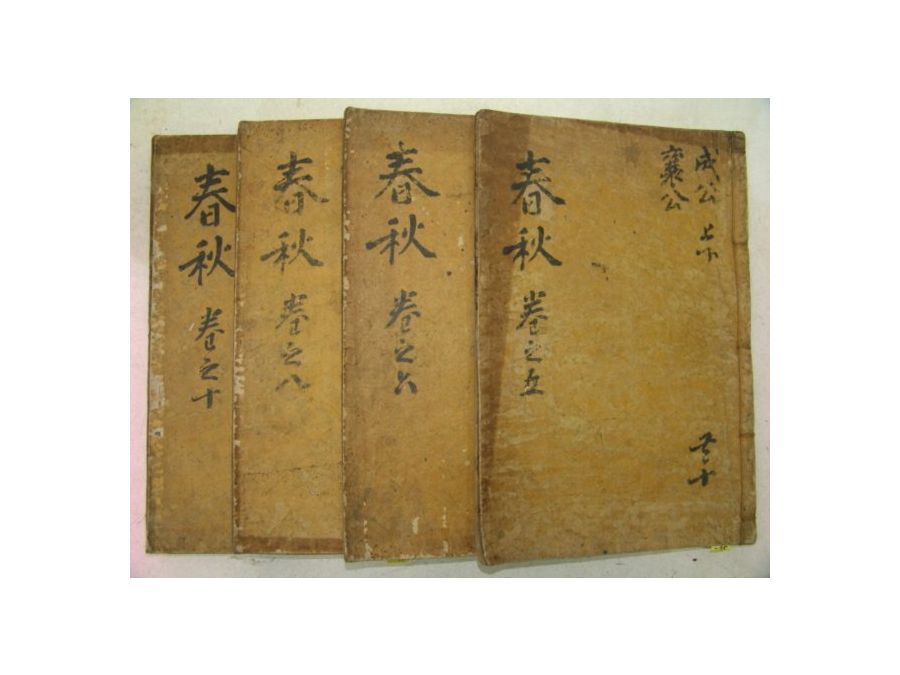 成公 上下
襄公
共十
春秋 卷之五
春秋 卷之六
春秋 卷之八
春秋 卷之十